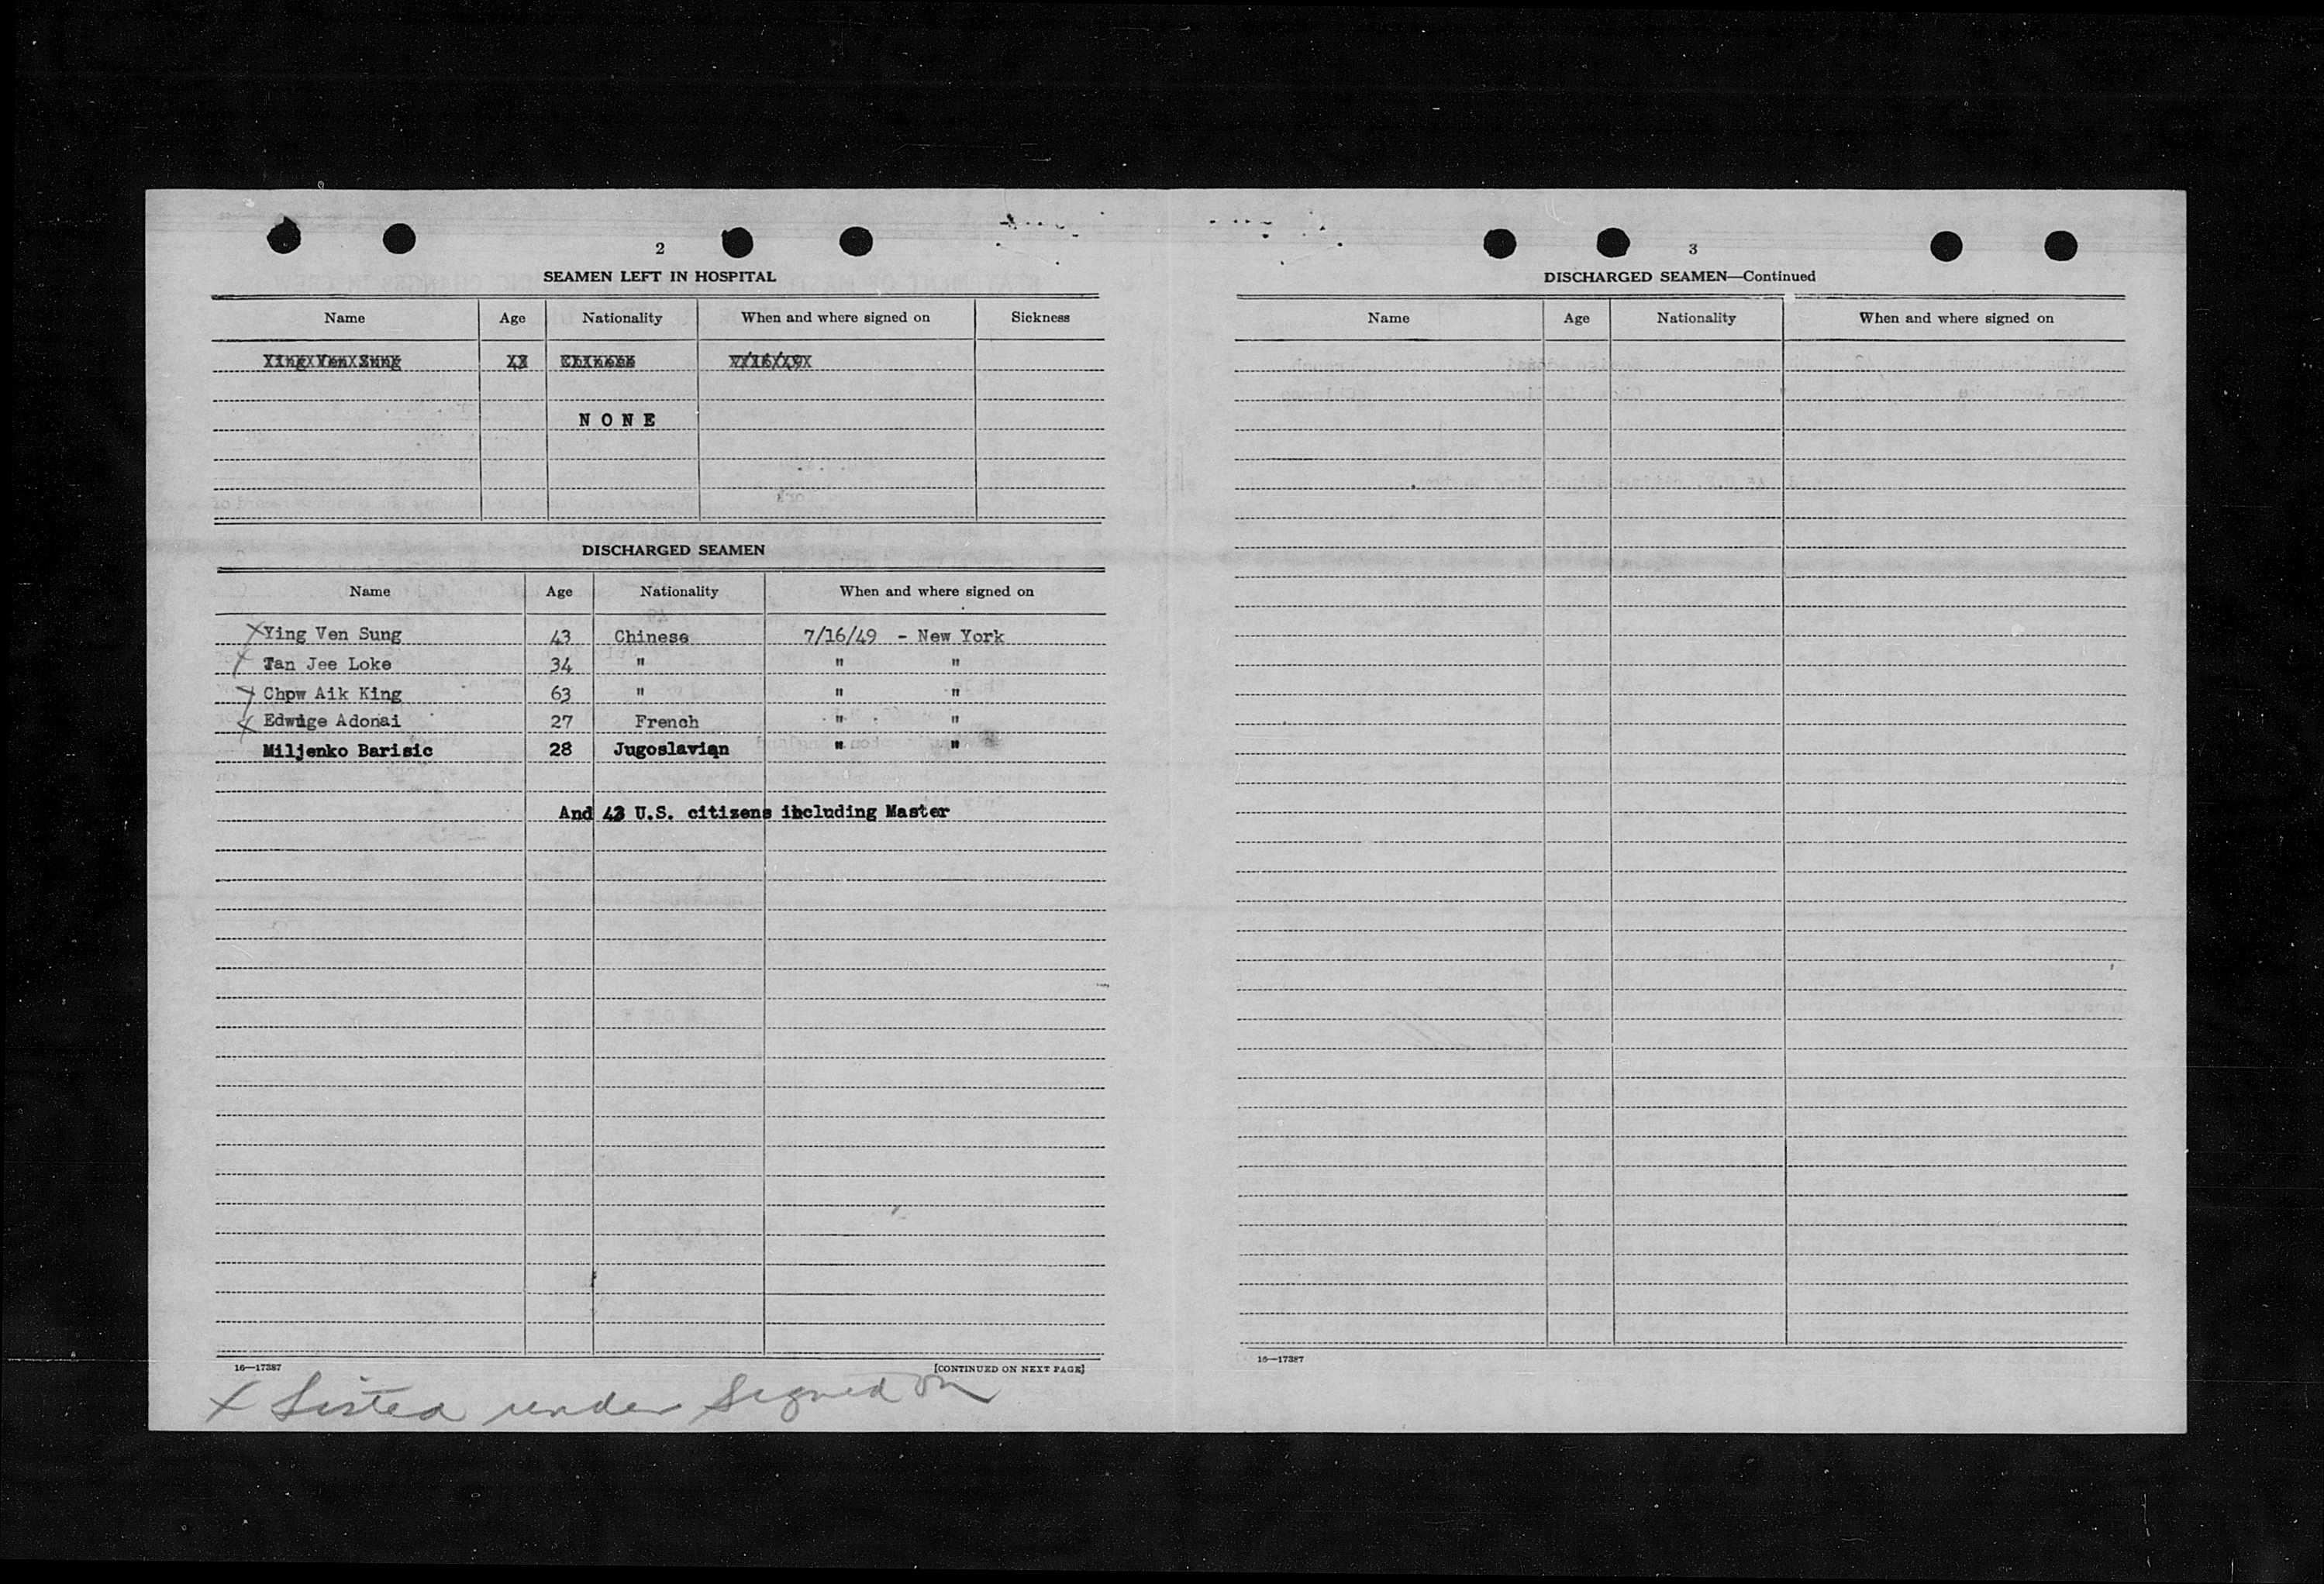 2
SEAMEN LEFT IN HOSPITAL
Name Age Nationality When and where signed on Sickness
Ying Ven Sung 43 Chinese 7/16/49
N O N E
DISCHARGED SEAMEN
Name Age Nationality When and where signed on
X Ying Ven Sung 43 Chinese 7/16/49 - New York
X Tan Jee Loke 34 " " "
X Chpw Aik King 63 " " "
X Edwige Adonai 27 French " "
Miljenko Barisic 28 Jugoslavian " "
And 43 U.S. citizens including Master
16—17387 [CONTINUED ON NEXT PAGE]
X Listed under Signed on
3
DISCHARGED SEAMEN—Continued
Name Age Nationality When and where signed on
16—17387